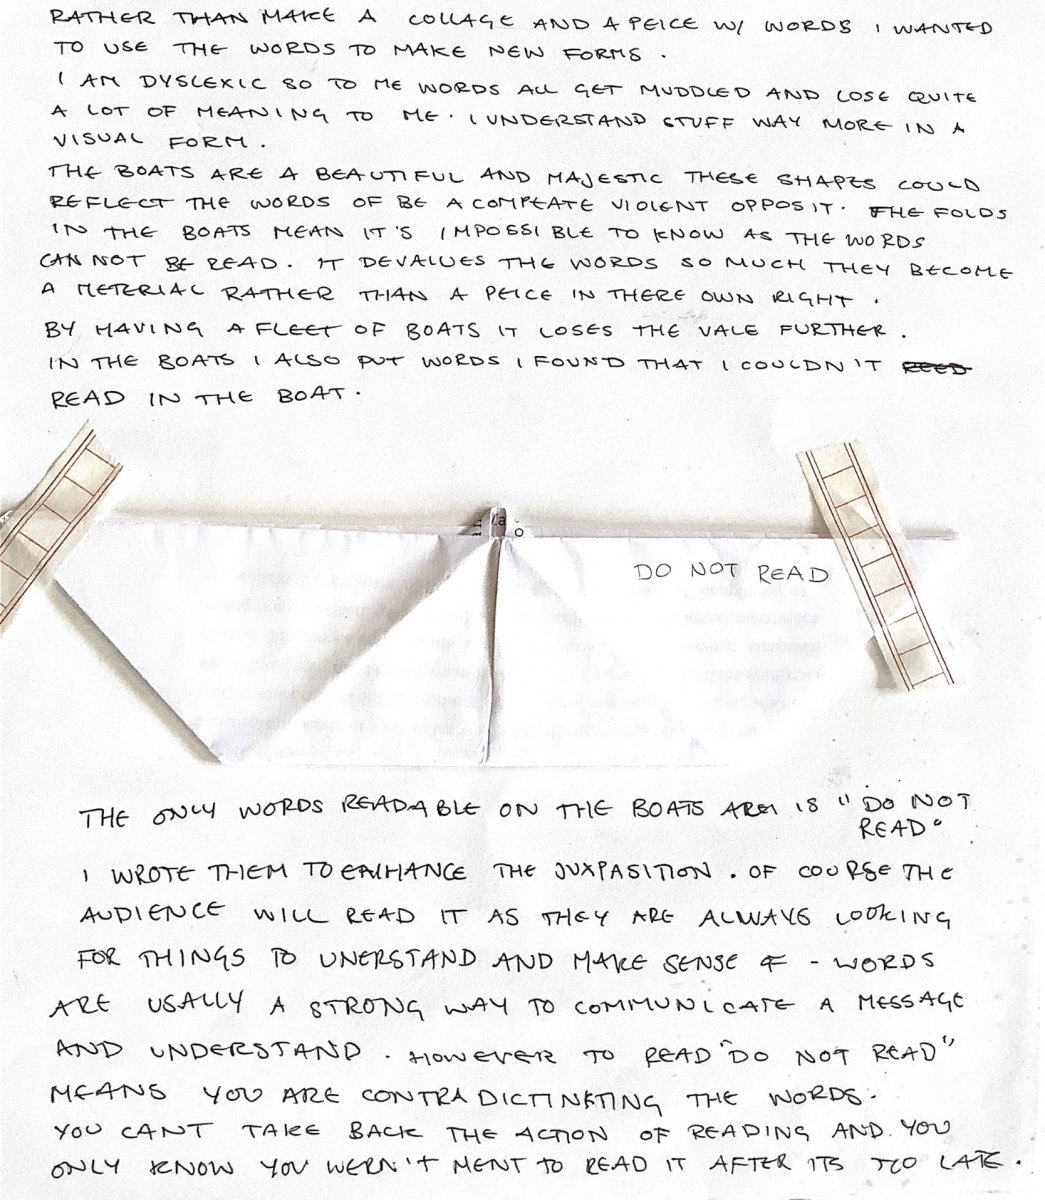 RATHER THAN MAKE A COLLAGE AND A PEICE W/ WORDS I WANTED
TO USE THE WORDS TO MAKE NEW FORMS.
I AM DYSLEXIC SO TO ME WORDS ALL GET MUDDLED AND LOSE QUITE
A LOT OF MEANING TO ME. I UNDERSTAND STUFF WAY MORE IN A
VISUAL FORM.
THE BOATS ARE A BEAUTIFUL AND MAJESTIC THESE SHAPES COULD
REFLECT THE WORDS OF BE A COMPLEATE VIOLENT OPPOSIT. THE FOLDS
IN THE BOATS MEAN IT'S IMPOSSIBLE TO KNOW AS THE WORDS
CAN NOT BE READ. IT DEVALUES THE WORDS SO MUCH THEY BECOME
A METERIAL RATHER THAN A PEICE IN THERE OWN RIGHT.
BY HAVING A FLEET OF BOATS IT LOSES THE VALE FURTHER.
IN THE BOATS I ALSO PUT WORDS I FOUND THAT I COULDN'T REED
READ IN THE BOAT.
DO NOT READ
THE ONLY WORDS READABLE ON THE BOATS ARE IS "DO NOT
READ"
I WROTE THEM TO ENHANCE THE JUXPASITION. OF COURSE THE
AUDIENCE WILL READ IT AS THEY ARE ALWAYS LOOKING
FOR THINGS TO UNERSTAND AND MAKE SENSE OF - WORDS
ARE USALLY A STRONG WAY TO COMMUNICATE A MESSAGE
AND UNDERSTAND. HOWEVER TO READ "DO NOT READ"
MEANS YOU ARE CONTRADICTINETING THE WORDS.
YOU CANT TAKE BACK THE ACTION OF READING AND YOU
ONLY KNOW YOU WERN'T MENT TO READ IT AFTER ITS TOO LATE.